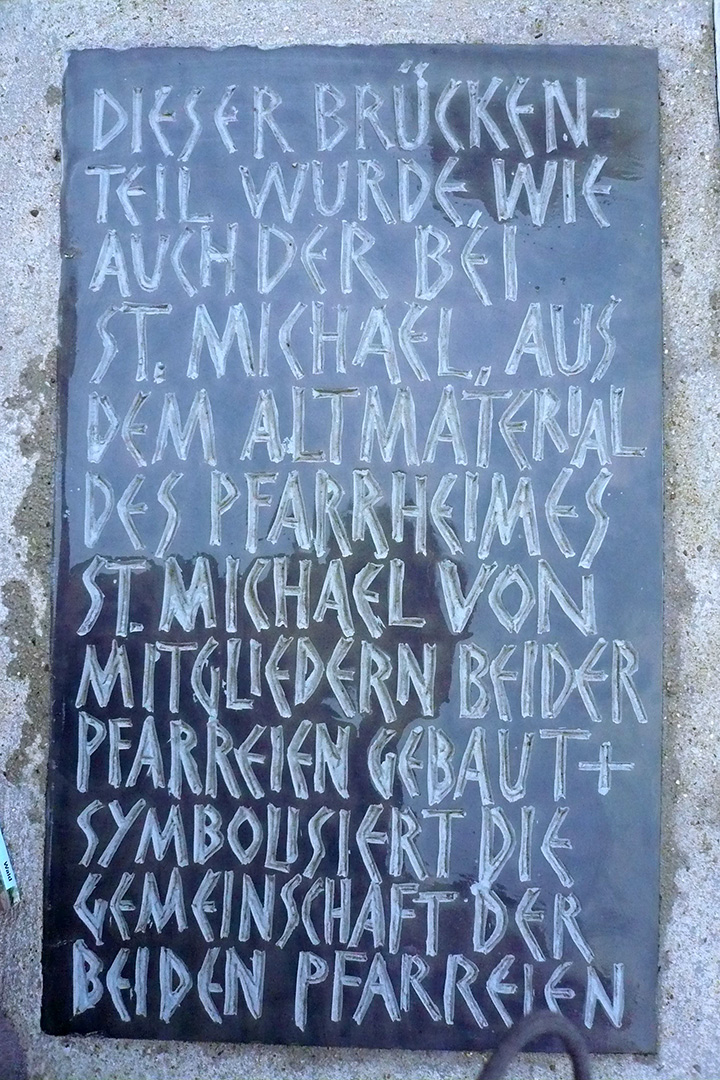 DIESER BRÜCKEN-
TEIL WURDE, WIE
AUCH DER BEI
ST. MICHAEL, AUS
DEM ALTMATERIAL
DES PFARRHEIMES
ST. MICHAEL VON
MITGLIEDERN BEIDER
PFARREIEN GEBAUT +
SYMBOLISIERT DIE
GEMEINSCHAFT DER
BEIDEN PFARREIEN
Wald